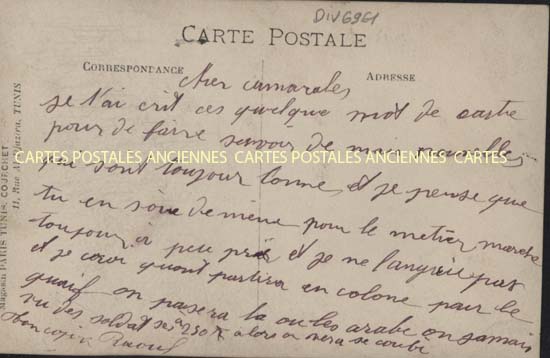 DIV6961
CARTE POSTALE
CORRESPONDANCE
ADRESSE
Magasin PARIS TUNIS, COJECHET
11, Rue Al-Djazira, TUNIS
Cher camarades
je t'ai crit ces quelque mot de cartre
pour de faire savoir de mais nouvelles
qui sont toujour bonne et je pense que
tu en soie de même pour le metier marche
toujour a peu près et je ne languie pas
et je croi quont partira en colone pour le
on pasera la ou les arabe on jamais
vu des soldat alors on sera
ton copin Raoul
CARTES POSTALES ANCIENNES CARTES POSTALES ANCIENNES CARTES